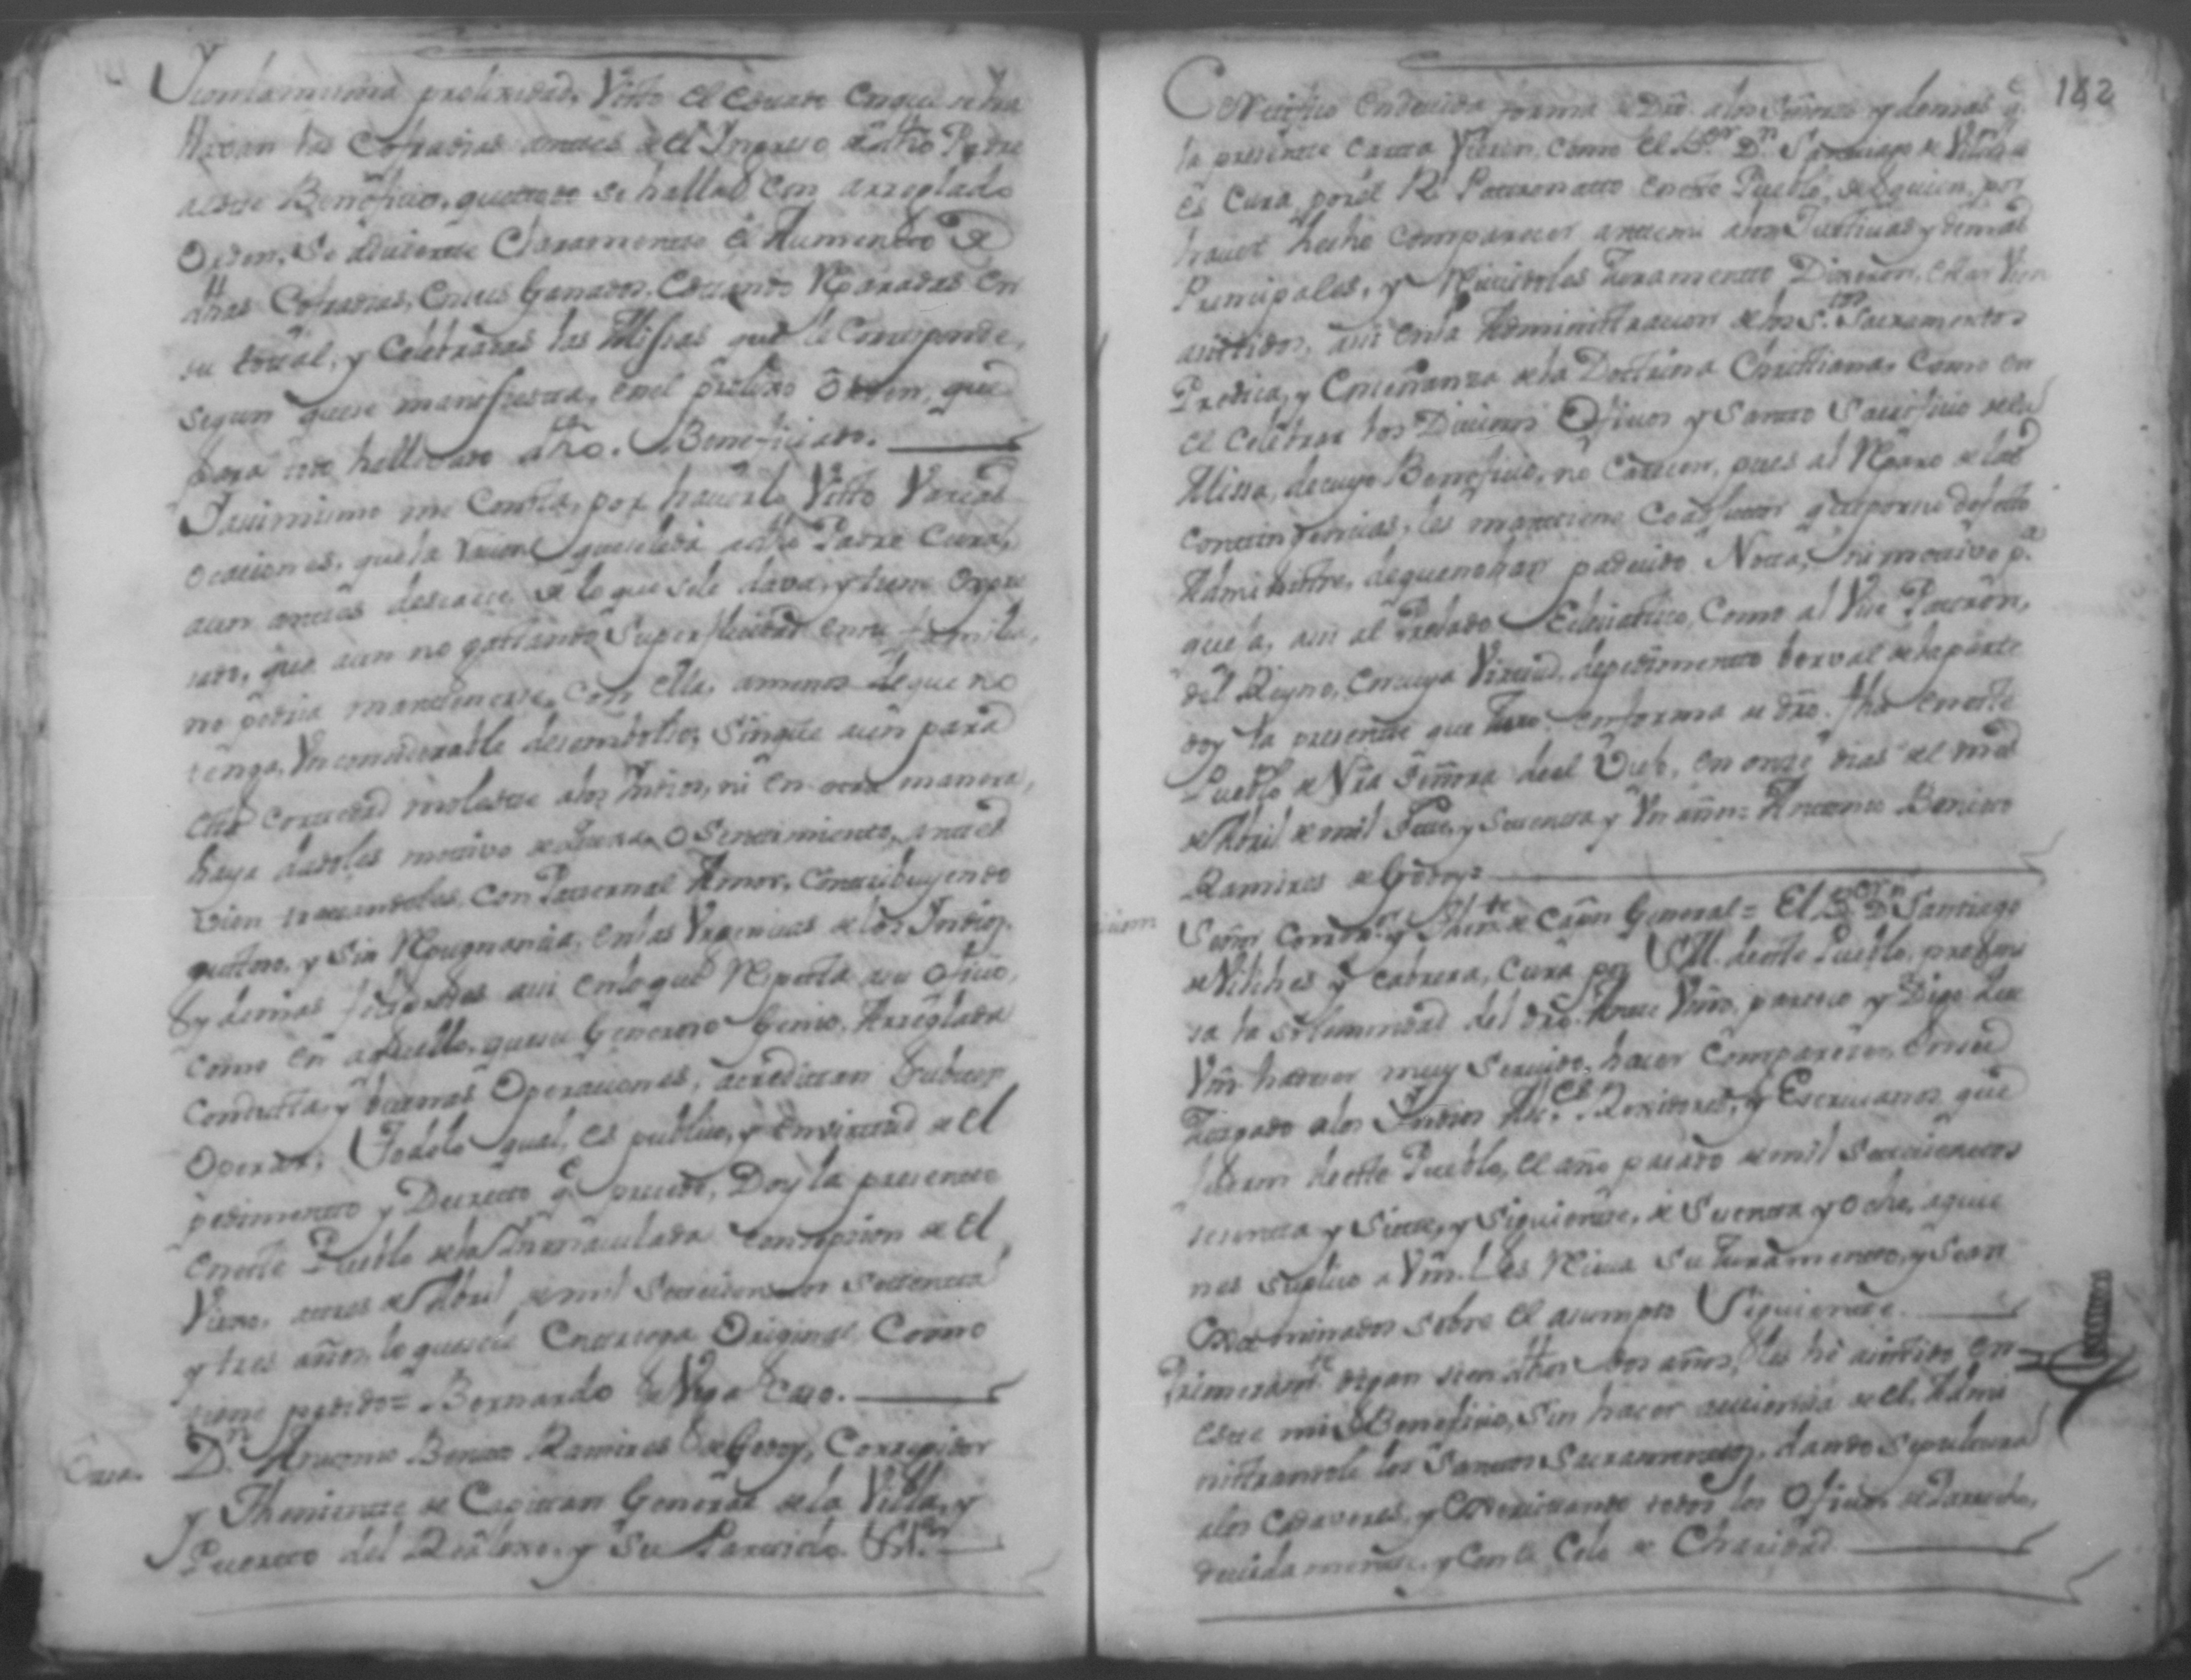 Y con la misma prolixidad, Visto el estado en que se ha
llavan las Cofradias antes de el Ingreso de dho Padre
a este Beneficio, que todo se halla con arreglado
Orden, Se advierte Claramente el Aumento de
dhas Cofradias, en sus Ganados, estando Reparadas en
su total, y Celebradas las Missas que le Corresponde,
segun que se manifiesta, en el prolixo Orden, que
para esto ha llevado dho. Beneficiado.
Y assimismo me Consta, por haverlo Visto Varias
Ocaciones, que la racion que se le da a dho Padre Cura,
aun antes descaece de lo que se le dava, y tiene
que aun no gastando Superfluidad en su familia,
no podria mantenerse, con ella, amenos de que no
tenga, Un considerable desembolso, Sin que aun para
esta cortedad moleste a los Indios, ni en otra manera,
haya dadoles motivo de quexa, O Sentimiento, antes
vien tratandoles, con Paternal Amor, Contribuyendo
gustoso, y Sin Repugnancia, en las Urgencias de los Indios
y demas feligreses assi en lo que Respecta a su Oficio,
como en aquello, que su Generoso Genio, Arreglada
Conducta, y buenas Operaciones, acreditan Su buen
Operar; Todo lo qual, es publico, y en virtud de el
pedimento y Decreto q precede, Doy la presente
en este Pueblo de la Inmaculada Consepcion de el
Viexo, a tres de Abril de mil Setecientos Settenta
y tres años, lo que se le Entrega Original, Como
tiene pedido= Bernardo de Vega
Dn Antonio Benito Ramires de Godoy, Corregidor
y Theniente de Capitan General de la Villa, y
Puerto del Realexo, y Su Partido
182
Certifico en devida forma de Dro. a los Señores y demas q
la presente Carta Vieren, como el Br. Dn Santiago de Vilches
es Cura por el Rl Patronatto en este Pueblo, de quien por
haver hecho Comparecer ante mi a los Justicias y demas
Principales, y Recividoles Juramento Dixeron,
assistidos, assi en la Administracion de los Stos Sacramentos
Predica, y Enseñanza de la Doctrina Christiana, Como en
el Celebrar los Divinos Oficios y Santo Sacrificio de la
Missa, de cuyo Beneficio, no Carecen, pues al Reparo de las
Contingencias, les mantiene Coadjutor q por su defecto
Administre, de que no han padecido Nota, ni motivo pa
quexa, assi al Prelado Eclesiastico, Como al Vice Patron,
del Reyno, en cuya Virtud, de pedimento verval de la parte
doy la presente que Juro en forma de dro. fha en este
Pueblo de Nra Señora de el Viejo, en onze dias del mes
de Abril de mil Settes. y Settenta y Un años= Antonio Benito
Ramires de Godoy=
Señor Corregr. y Thente de Capn General= El Br. Dn Santiago
de Vilches y Cabrera, Cura por S.M. de este Pueblo,
la solemnidad del dro. Ante Vmd. paresco y Digo
Vm. ha de ser muy Servido, hacer Comparecer, en su
Juzgado a los Indios Alces. Rexidores, y Escrivanos que
fueron de este Pueblo, el año pasado de mil Settecientos
sesenta y Siete, y Siguiente, de Sesenta y Ocho, a quie
nes suplico a Vm. les Reciva Su Juramento, y Sean
Examinados sobre el asumpto Siguiente.
Primeramte. digan si en dhos dos años, les hé asistido en
este mi Beneficio, Sin hacer aussencia de el, Admi
nistrandole los Santos Sacramentos, dando Sepultura
a los Cadaveres, y Exercitando todos los Oficios de Parrocho,
devidamente, y con el Celo de Charidad